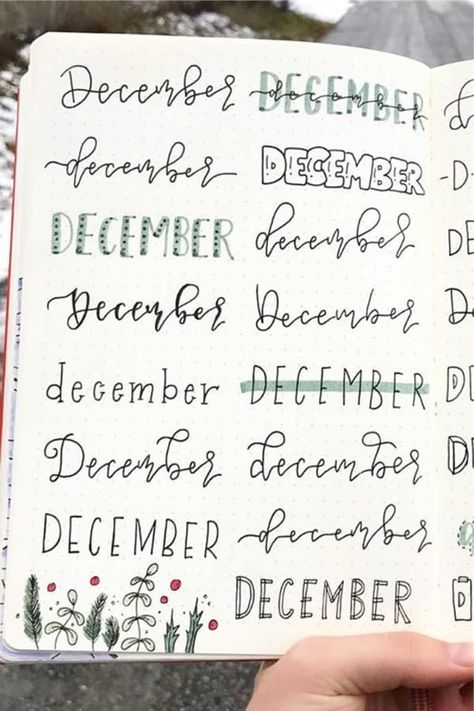 December DECEMBER december
december DECEMBER
DECEMBER december
December December
december DECEMBER
December december
DECEMBER december
DECEMBER